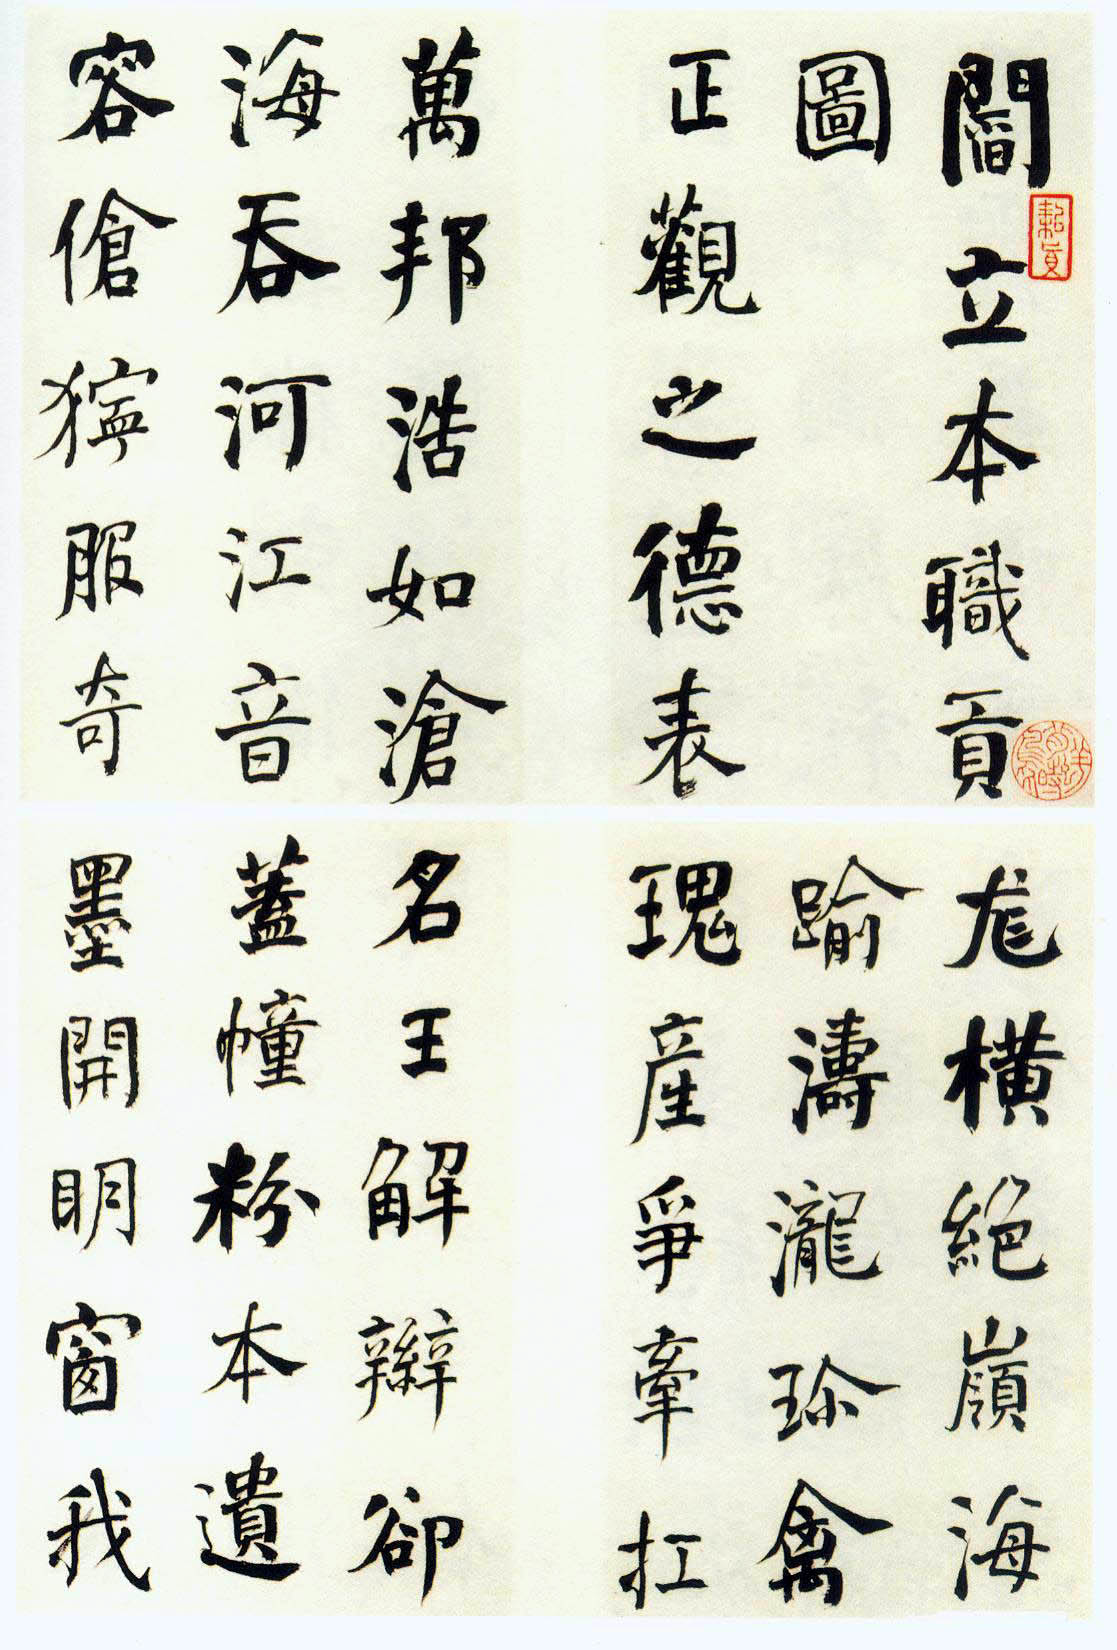 閻立本職貢
圖
正觀之德表
萬邦浩如滄
海吞河江音
容傖獰服奇
尨橫絕嶺海
踰濤瀧珍禽
瑰產爭牽扛
名王解辮卻
蓋幢粉本遺
墨開明窗我